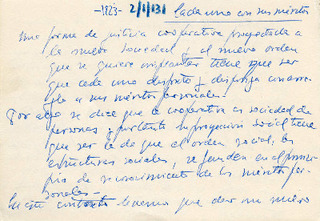 -1923- 2/1/131 Cada uno en sus méritos
Una forma de justicia cooperativa proyectada a
la nueva sociedad y al nuevo orden
que se quiere implantar tiene que ser
que cada uno disfrute y disponga en arre-
glo a sus méritos personales.
Por algo se dice que la cooperativa es sociedad de
personas y por tanto su proyección social tiene
que ser la de que el orden social, las
estructuras sociales, se funden en el princi-
pio de reconocimiento de los méritos per-
sonales.-
En este contexto tenemos que dar un nuevo